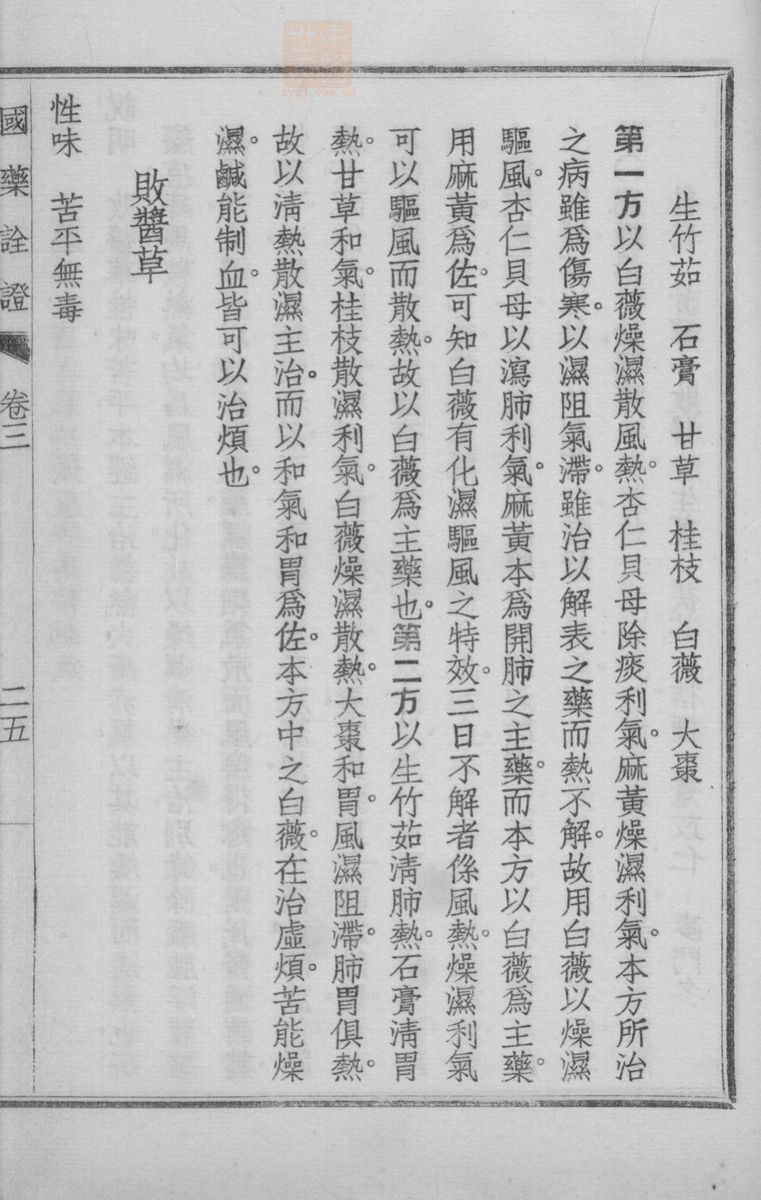 生竹茹　石膏　甘草　桂枝　白薇　大棗
第一方以白薇燥濕散風熱。杏仁貝母除痰利氣。麻黃燥濕利氣。本方所治
之病雖爲傷寒。以濕阻氣滯。雖治以解表之藥而熱不解。故用白薇以燥濕
驅風。杏仁貝母以瀉肺利氣。麻黃本爲開肺之主藥。而本方以白薇爲主藥。
用麻黃爲佐。可知白薇有化濕驅風之特效。三日不解者係風熱。燥濕利氣
可以驅風而散熱。故以白薇爲主藥也。第二方以生竹茹清肺熱。石膏清胃
熱。甘草和氣。桂枝散濕利氣。白薇燥濕散熱。大棗和胃。風濕阻滯。肺胃俱熱。
故以清熱散濕主治。而以和氣和胃爲佐。本方中之白薇。在治虛煩。苦能燥
濕。鹹能制血。皆可以治煩也。
敗醬草
性味　苦平無毒
國藥詮證　卷三　二五